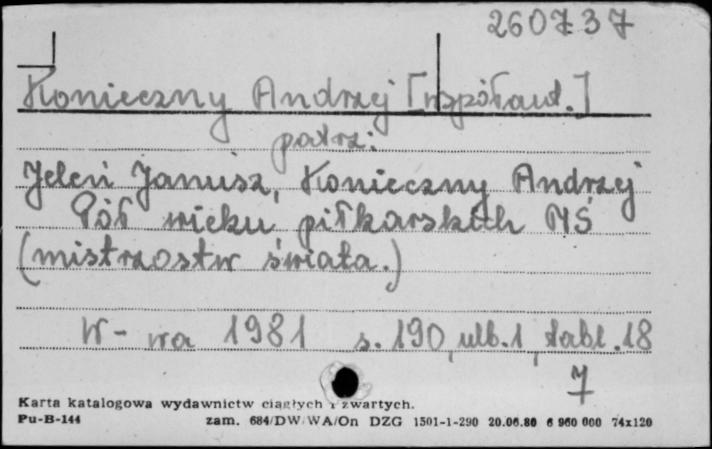 260737
Konieczny Andrzej [współaut.]
patrz:
Jeleń Janusz, Konieczny Andrzej
Pół wieku piłkarskich MŚ
(mistrzostw świata.)
W-wa 1981 s. 190, ulb. 1, tabl. 18
7
Karta katalogowa wydawnictw ciągłych i zwartych.
Pu-B-144 zam. 684/DW/WA/On DZG 1501-1-290 20.06.80 6 960 000 74x120